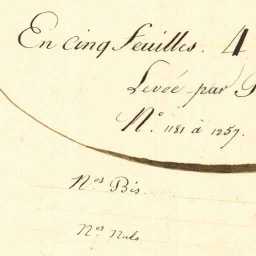 En cinq feuilles. 4
Levée par
N.° 1181 à 1257.
N.os Bis
N.os Nuls